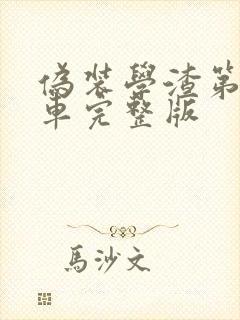 偽裝學渣第
車完整版
馬沙文